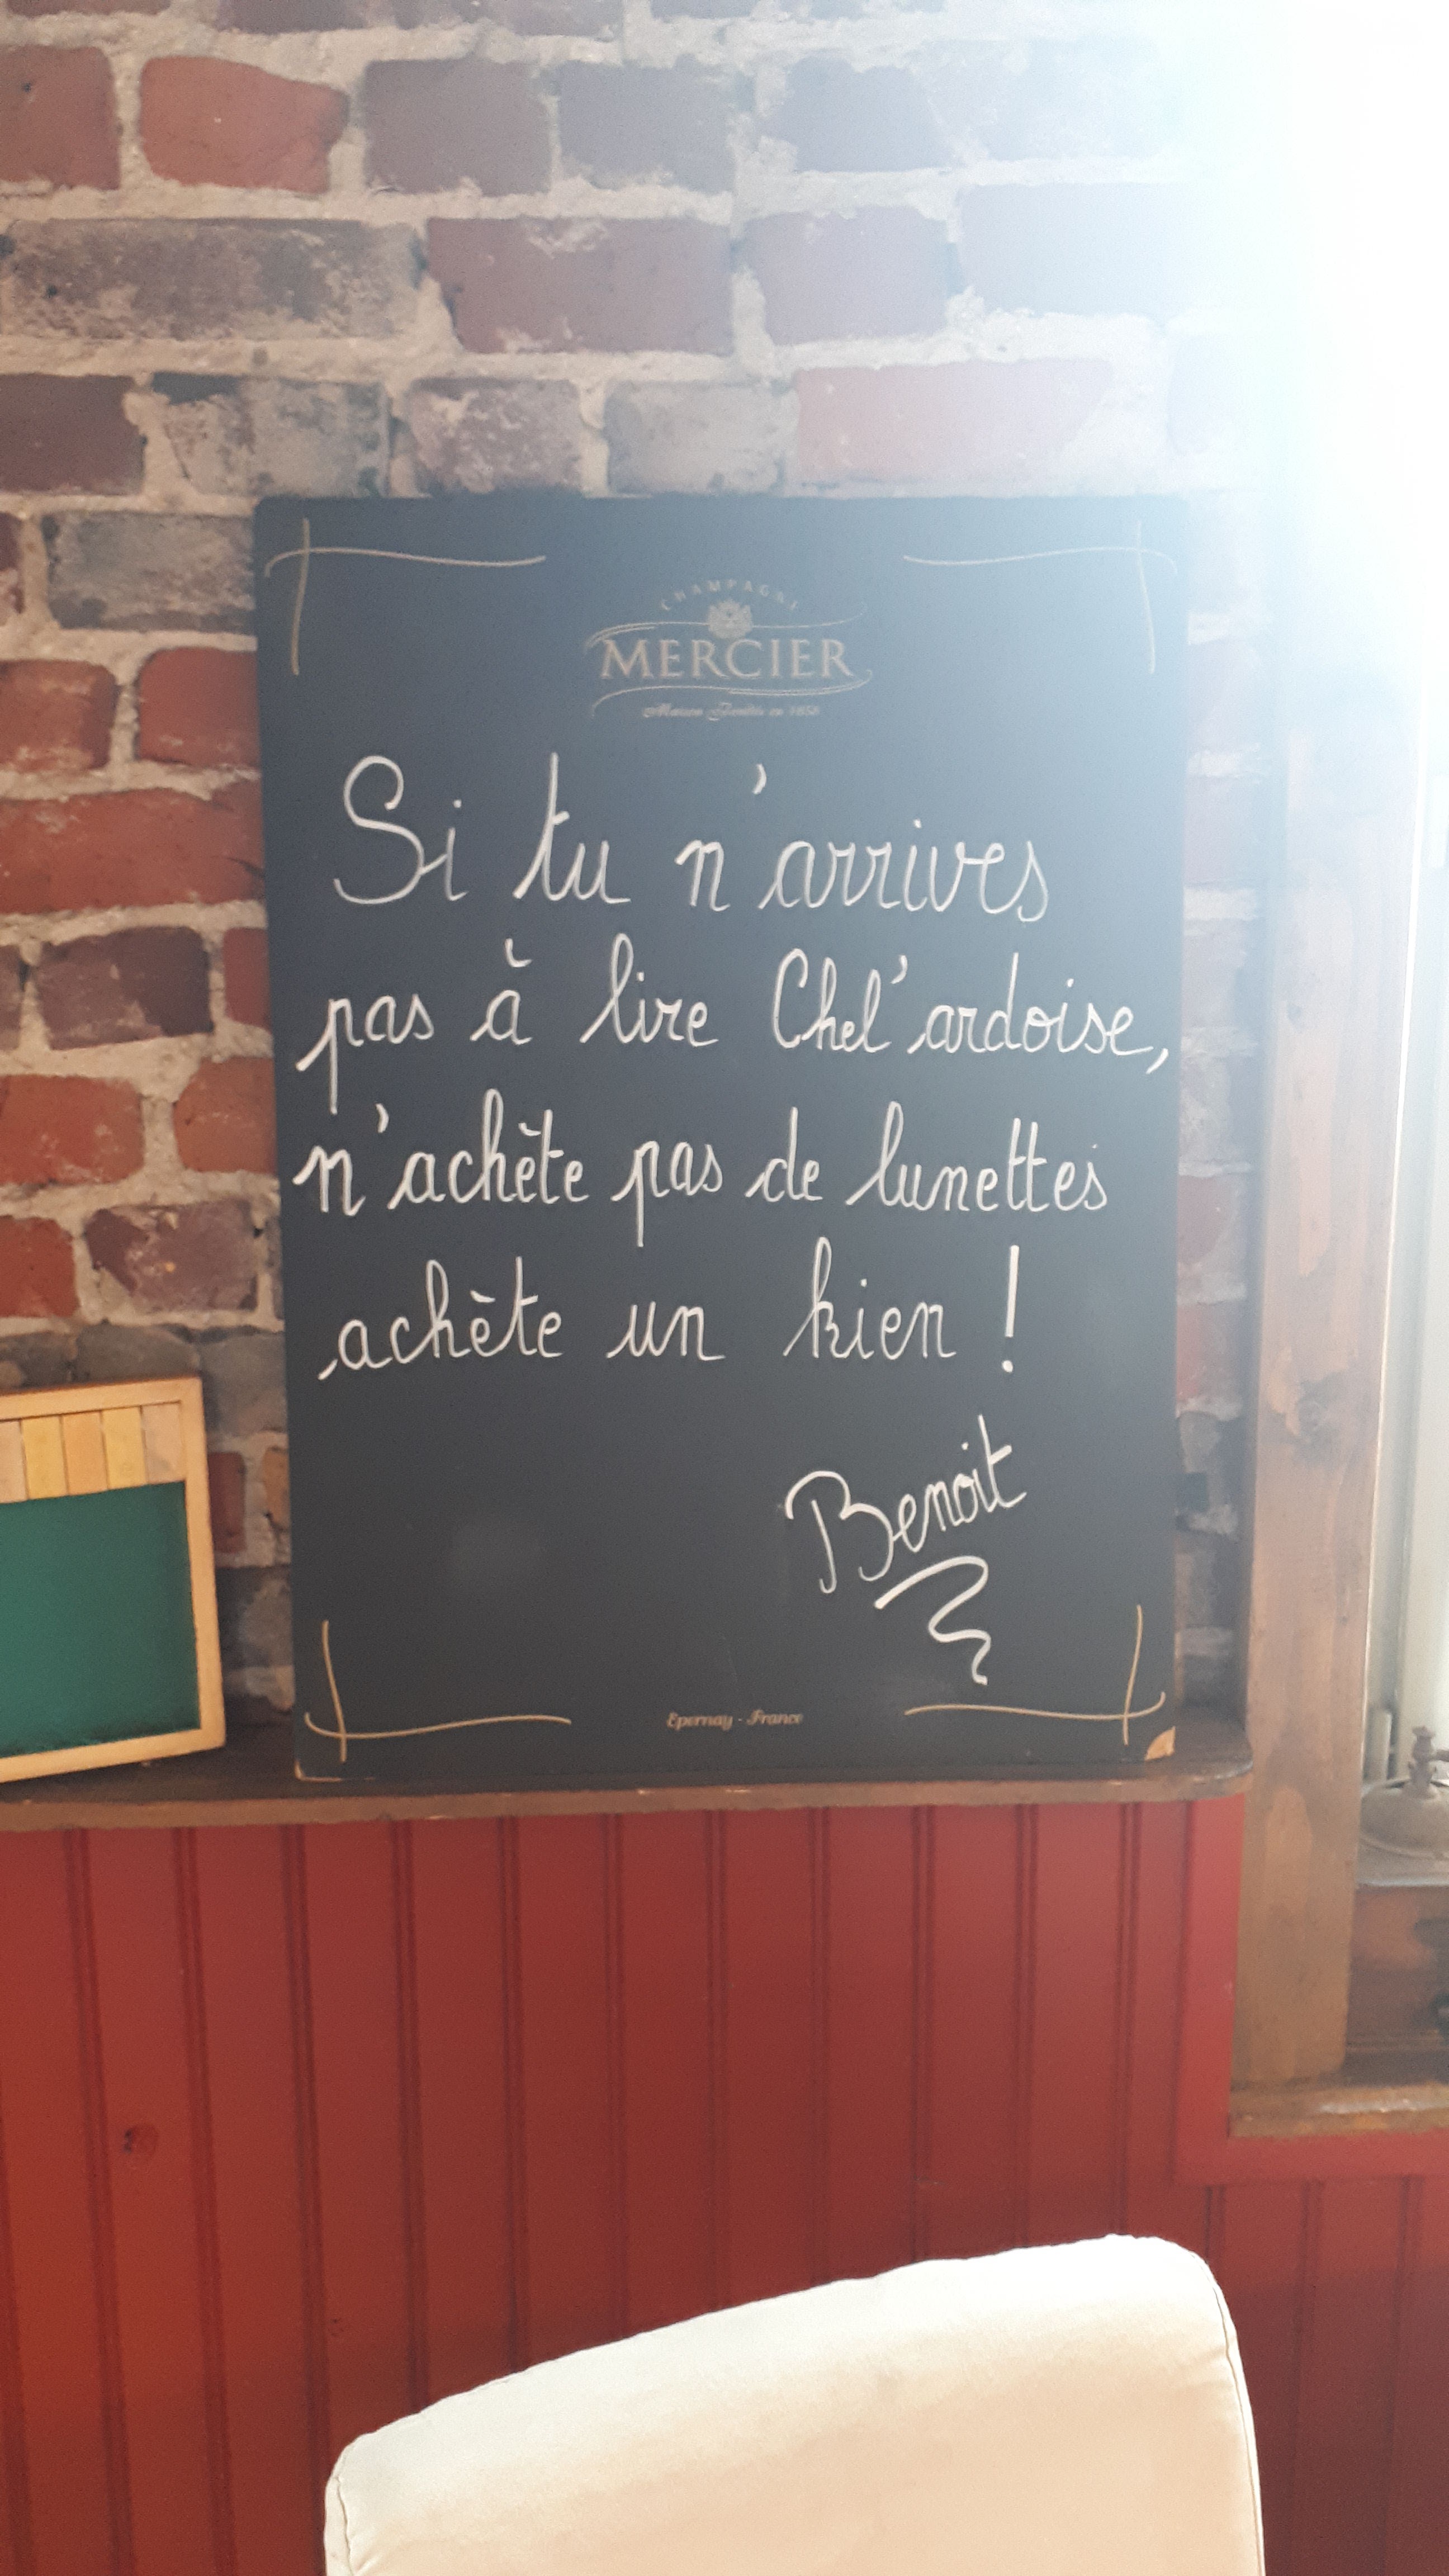 CHAMPAGNE
MERCIER
Maison Fondée en 1858
Si tu n'arrives
pas à lire Chel'ardoise,
n'achète pas de lunettes
achète un kien !
Benoit
Epernay - France